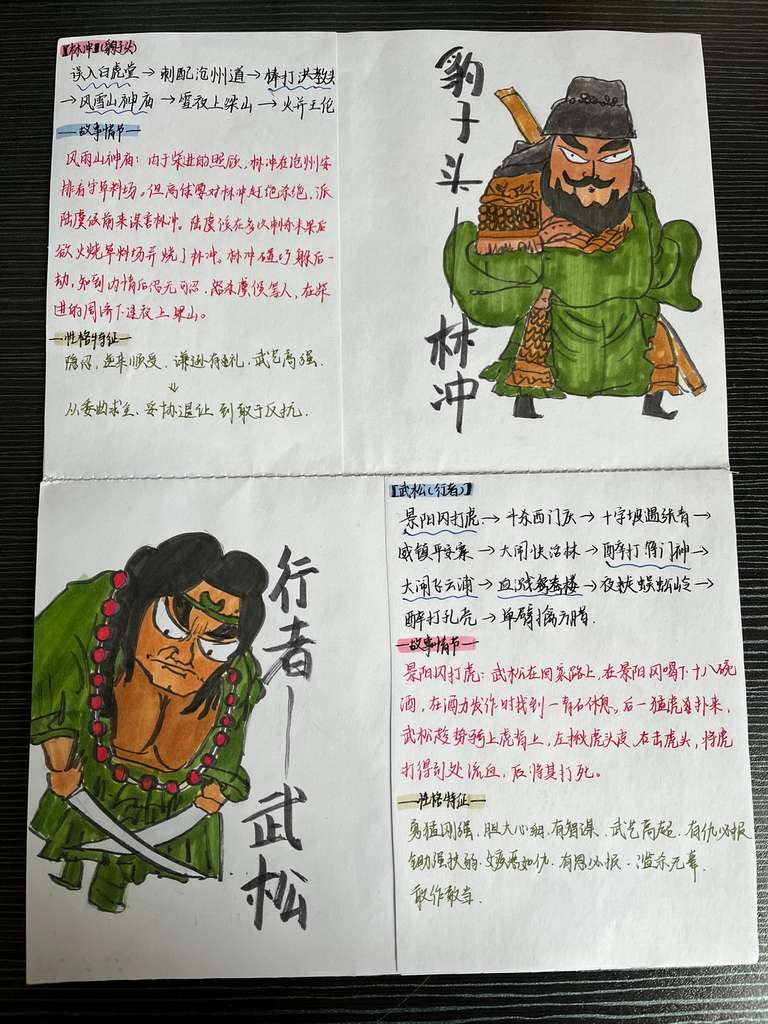 【林冲】(豹子头)
误入白虎堂→刺配沧州道→棒打洪教头
→风雪山神庙→雪夜上梁山→火并王伦
—故事情节—
风雨山神庙：由于柴进的照顾，林冲在沧州安
排看守草料场。但高俅要对林冲赶尽杀绝，派
陆虞候前来谋害林冲。陆虞侯在多次刺杀未果后
欲火烧草料场并烧了林冲。林冲碰巧躲后一
劫，知到内情后忍无可忍，陆虞候等人，在柴
进的周济下连夜上梁山。
—性格特征—
隐忍，逆来顺受，谦逊有礼，武艺高强．
从委曲求全、妥协退让到敢于反抗．
豹子头—林冲
行者—武松
【武松(行者)】
景阳冈打虎→斗杀西门庆→十字坡遇张青→
威镇平安寨→大闹快活林→醉打蒋门神→
大闹飞云浦→血溅鸳鸯楼→夜走蜈蚣岭→
醉打孔亮→单臂擒方腊．
—故事情节—
景阳冈打虎：武松在回家路上，在景阳冈喝下十八碗
酒，在酒力发作时找到一青石休息。后一猛虎扑来，
武松趁势骑上虎背上，左揪虎头皮，右击虎头，将虎
打得到处流血，后将其打死。
—性格特征—
勇猛刚强．胆大心细．有智谋．武艺高超．有仇必报
锄强扶弱．嫉恶如仇．有恩必报．滥杀无辜．
敢作敢当